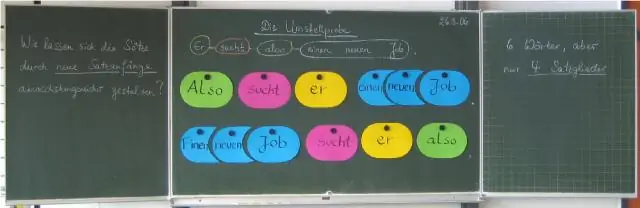 Wie lassen sich die Sätze
durch neue Satzanfänge
abwechslungsreicher gestalten?
Die Umstellprobe
26.9.06
Er sucht also einen neuen Job.
Also sucht er einen neuen Job
Einen neuen Job sucht er also
6 Wörter, aber
nur 4 Satzglieder